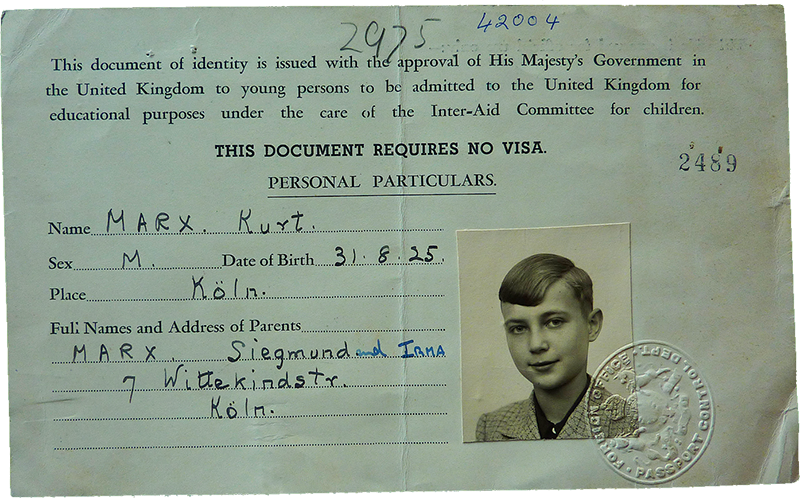 2975
42004
This document of identity is issued with the approval of His Majesty's Government in
the United Kingdom to young persons to be admitted to the United Kingdom for
educational purposes under the care of the Inter-Aid Committee for children.
THIS DOCUMENT REQUIRES NO VISA.
2489
PERSONAL PARTICULARS.
Name MARX. Kurt.
Sex M. Date of Birth 31.8.25.
Place Köln.
Full Names and Address of Parents
MARX. Siegmund and IRMA
7 Wittekindstr.
Köln.
FOREIGN OFFICE PASSPORT CONTROL DEPT.